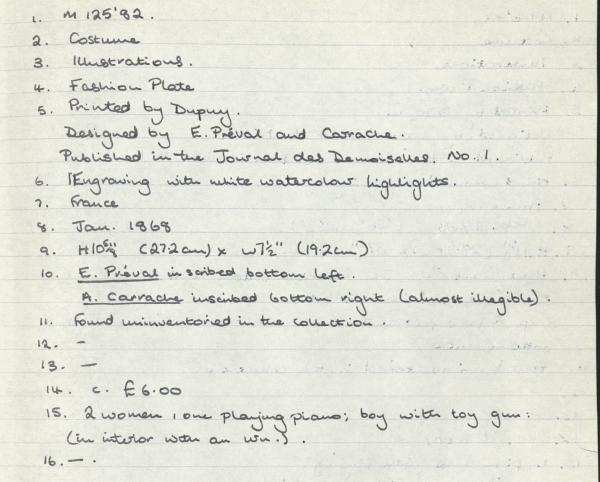 1. M 125'82.
2. Costume
3. Illustrations.
4. Fashion Plate
5. Printed by Dupuy.
Designed by E. Préval and Carrache.
Published in the Journal des Demoiselles. No. 1.
6. Engraving with white watercolour highlights.
7. France
8. Jan. 1868
9. H10 (27.2cm) x W7½" (19.2cm)
10. E. Préval inscribed bottom left.
A. Carrache inscribed bottom right (almost illegible).
11. Found uninventoried in the collection.
12. -
13. —
14. c. £6.00
15. 2 women, one playing piano; boy with toy gun:
(in interior with an).
16. —.